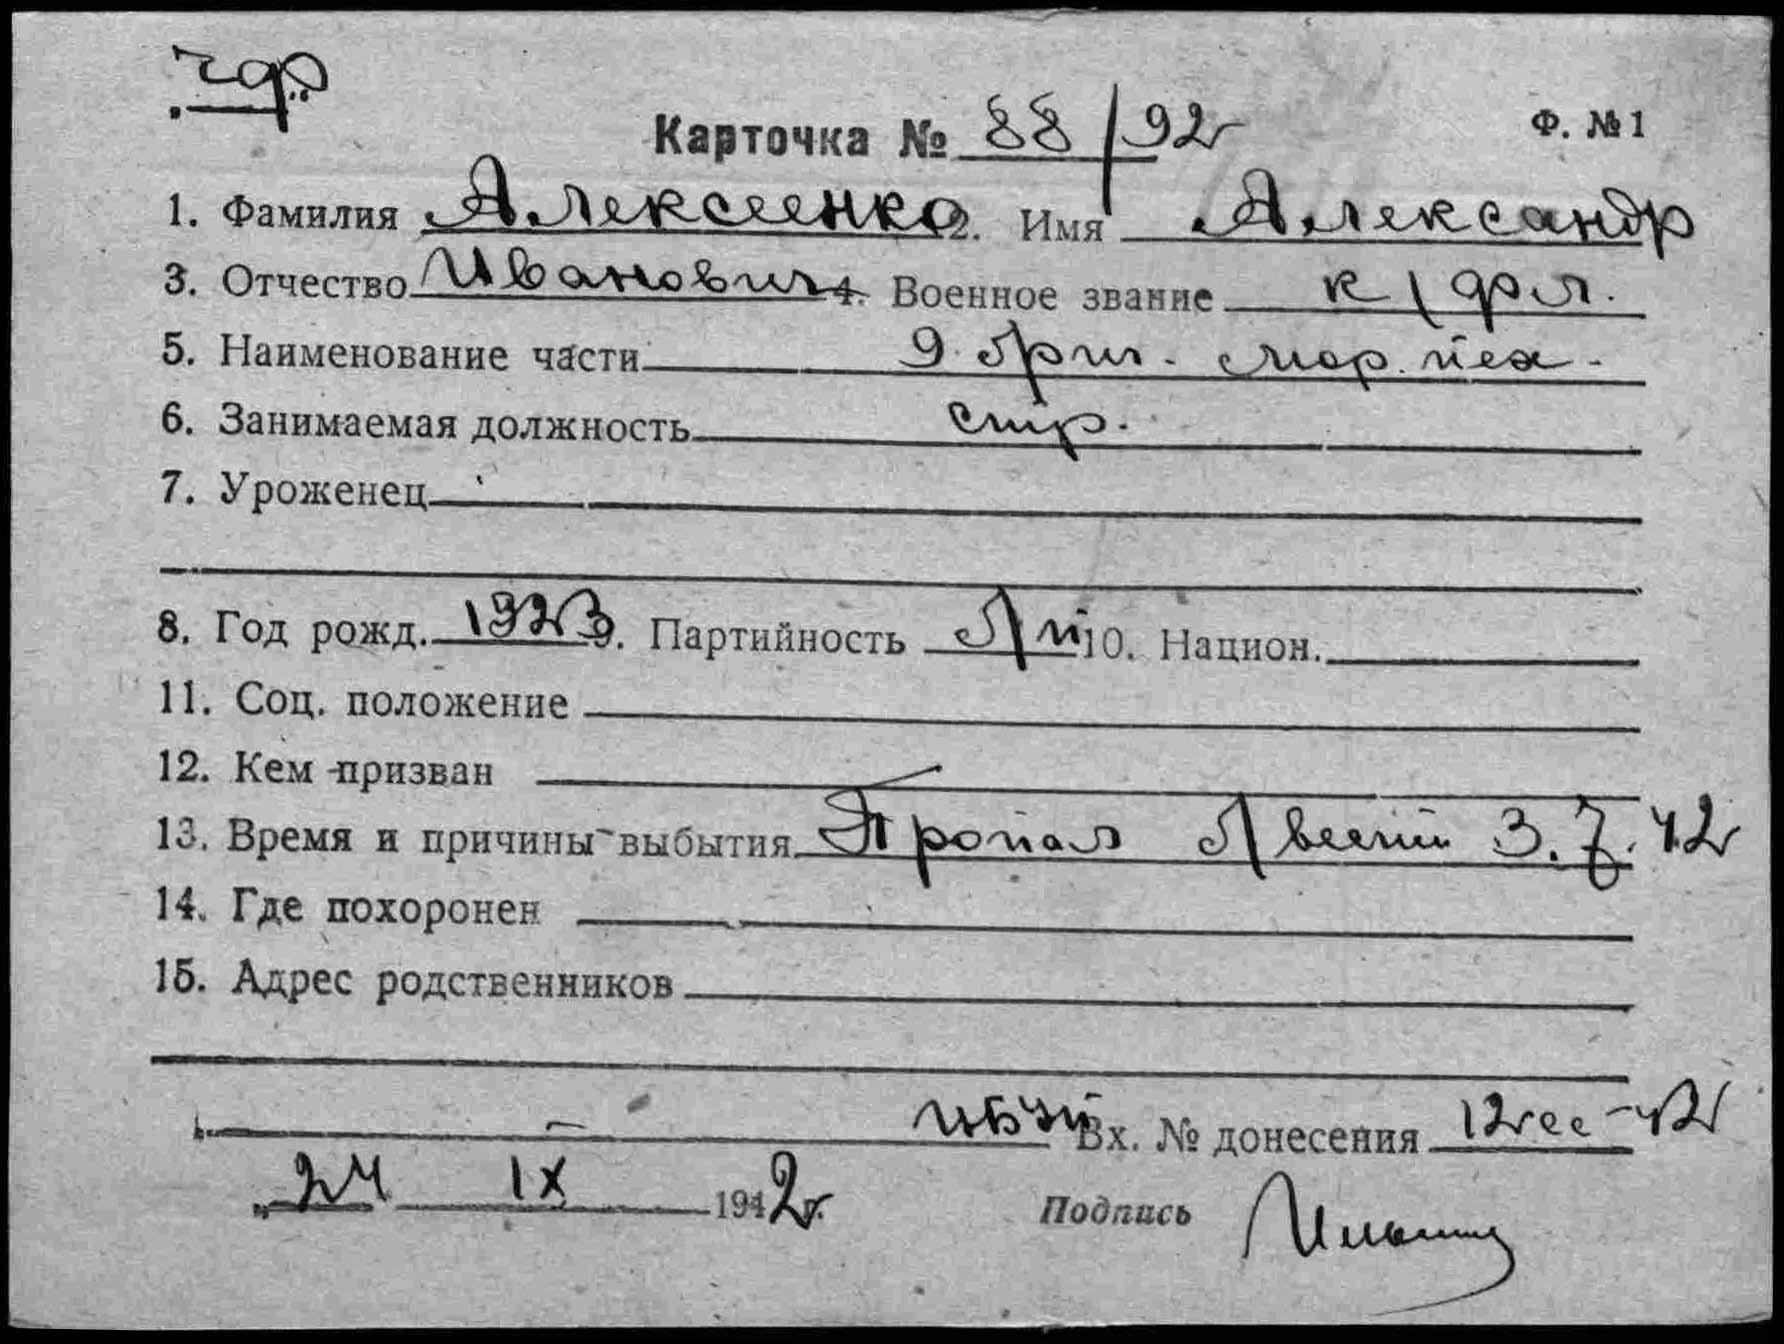 чф
Карточка № 88/92 Ф. № 1
1. Фамилия Алексеенко 2. Имя Александр
3. Отчество Иванович 4. Военное звание к/фл.
5. Наименование части 9 бриг. мор. пех.
6. Занимаемая должность стр.
7. Уроженец
8. Год рожд. 1923 9. Партийность б/п 10. Национ.
11. Соц. положение
12. Кем призван
13. Время и причины выбытия Пропал б/вести 3.7.42
14. Где похоронен
15. Адрес родственников
Вх. № донесения 12сс-42
„24 IX 1942г.
Подпись